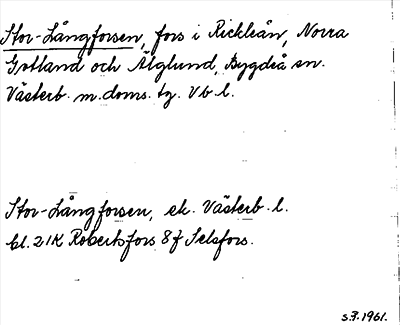 Stor-Långforsen, fors i Rickleån, Norra
Gotland och Älglund, Bygdeå sn.
Västerb. m. doms. tg. Vb l.
Stor-Långforsen, ek. Västerb. l.
bl. 21K Robertsfors 8f Selsfors.
s.7.1961.